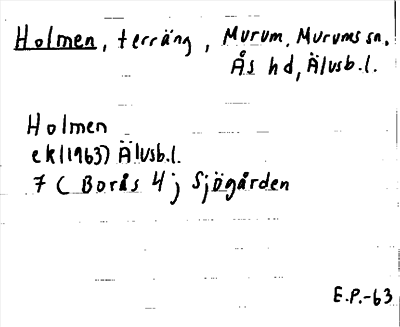 Holmen, terräng, Murum, Murums sn,
Ås hd, Älvsb.l.
Holmen
ek(1963) Älvsb.l.
7 C Borås 4 j Sjögården
E.P.-63